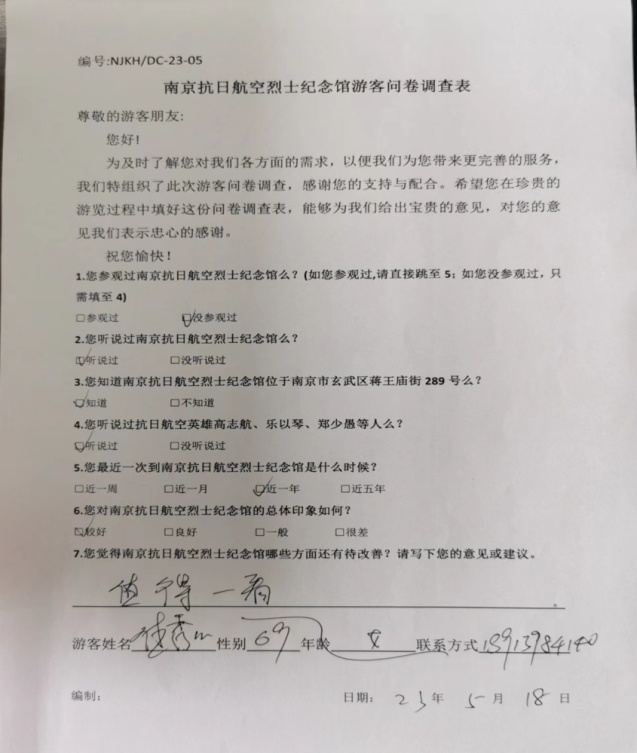 编号:NJKH/DC-23-05
南京抗日航空烈士纪念馆游客问卷调查表
尊敬的游客朋友:
您好!
为及时了解您对我们各方面的需求，以便我们为您带来更完善的服务，
我们特组织了此次游客问卷调查，感谢您的支持与配合。希望您在珍贵的
游览过程中填好这份问卷调查表，能够为我们给出宝贵的意见，对您的意
见我们表示忠心的感谢。
祝您愉快！
1.您参观过南京抗日航空烈士纪念馆么？(如您参观过,请直接跳至 5；如您没参观过，只
需填至 4)
□参观过 ☑没参观过
2.您听说过南京抗日航空烈士纪念馆么？
☑听说过 □没听说过
3.您知道南京抗日航空烈士纪念馆位于南京市玄武区蒋王庙街 289 号么？
☑知道 □不知道
4.您听说过抗日航空英雄高志航、乐以琴、郑少愚等人么？
☑听说过 □没听说过
5.您最近一次到南京抗日航空烈士纪念馆是什么时候？
□近一周 □近一月 ☑近一年 □近五年
6.您对南京抗日航空烈士纪念馆的总体印象如何？
☑较好 □良好 □一般 □很差
7.您觉得南京抗日航空烈士纪念馆哪些方面还有待改善？请写下您的意见或建议。
值得一看。
游客姓名 性别 69 年龄 女 联系方式
编制： 日期： 23 年 5 月 18 日